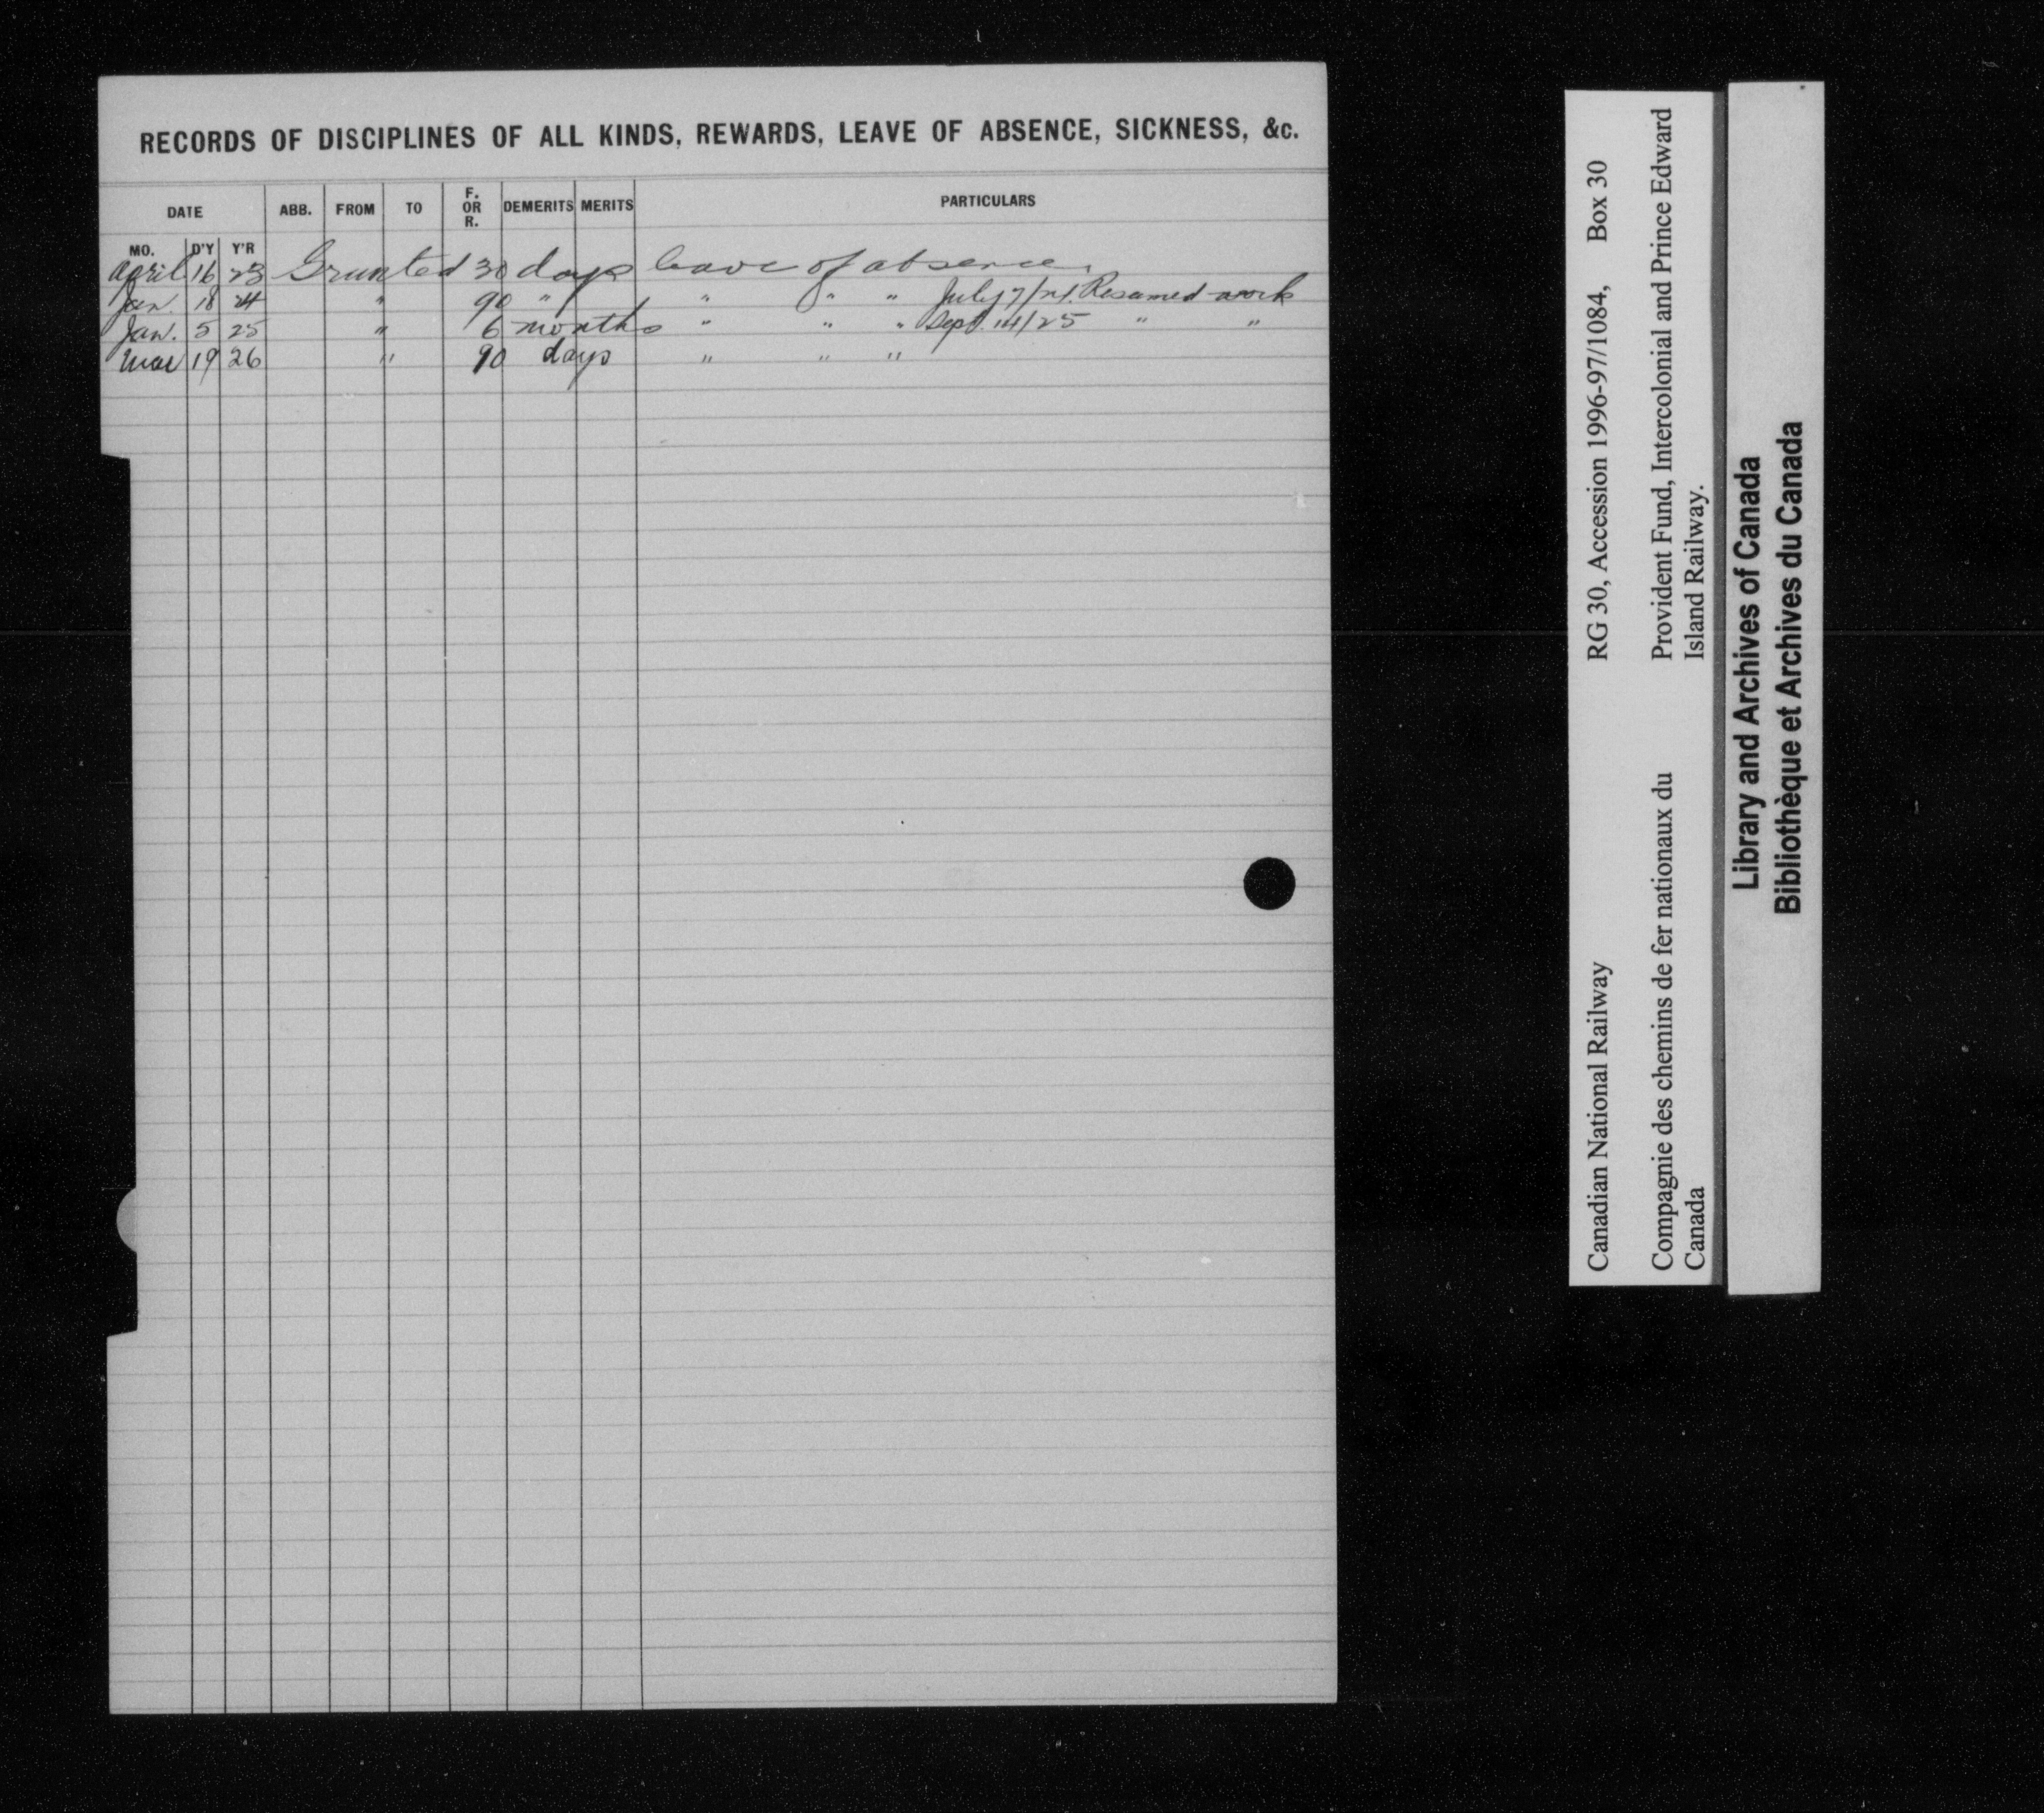 RECORDS OF DISCIPLINES OF ALL KINDS, REWARDS, LEAVE OF ABSENCE, SICKNESS, &c.
DATE ABB. FROM TO F. OR R. DEMERITS MERITS PARTICULARS
MO. D'Y Y'R
April 16 23 Granted 30 days leave of absence.
Jan. 18 24 " 90 " " " " July 7/24. Resumed work
Jan. 5 25 " 6 months " " " Sept. 14/25 " "
Mar 19 26 " 90 days " " "
Canadian National Railway RG 30, Accession 1996-97/1084, Box 30
Compagnie des chemins de fer nationaux du Provident Fund, Intercolonial and Prince Edward
Canada Island Railway.
Library and Archives of Canada
Bibliothèque et Archives du Canada